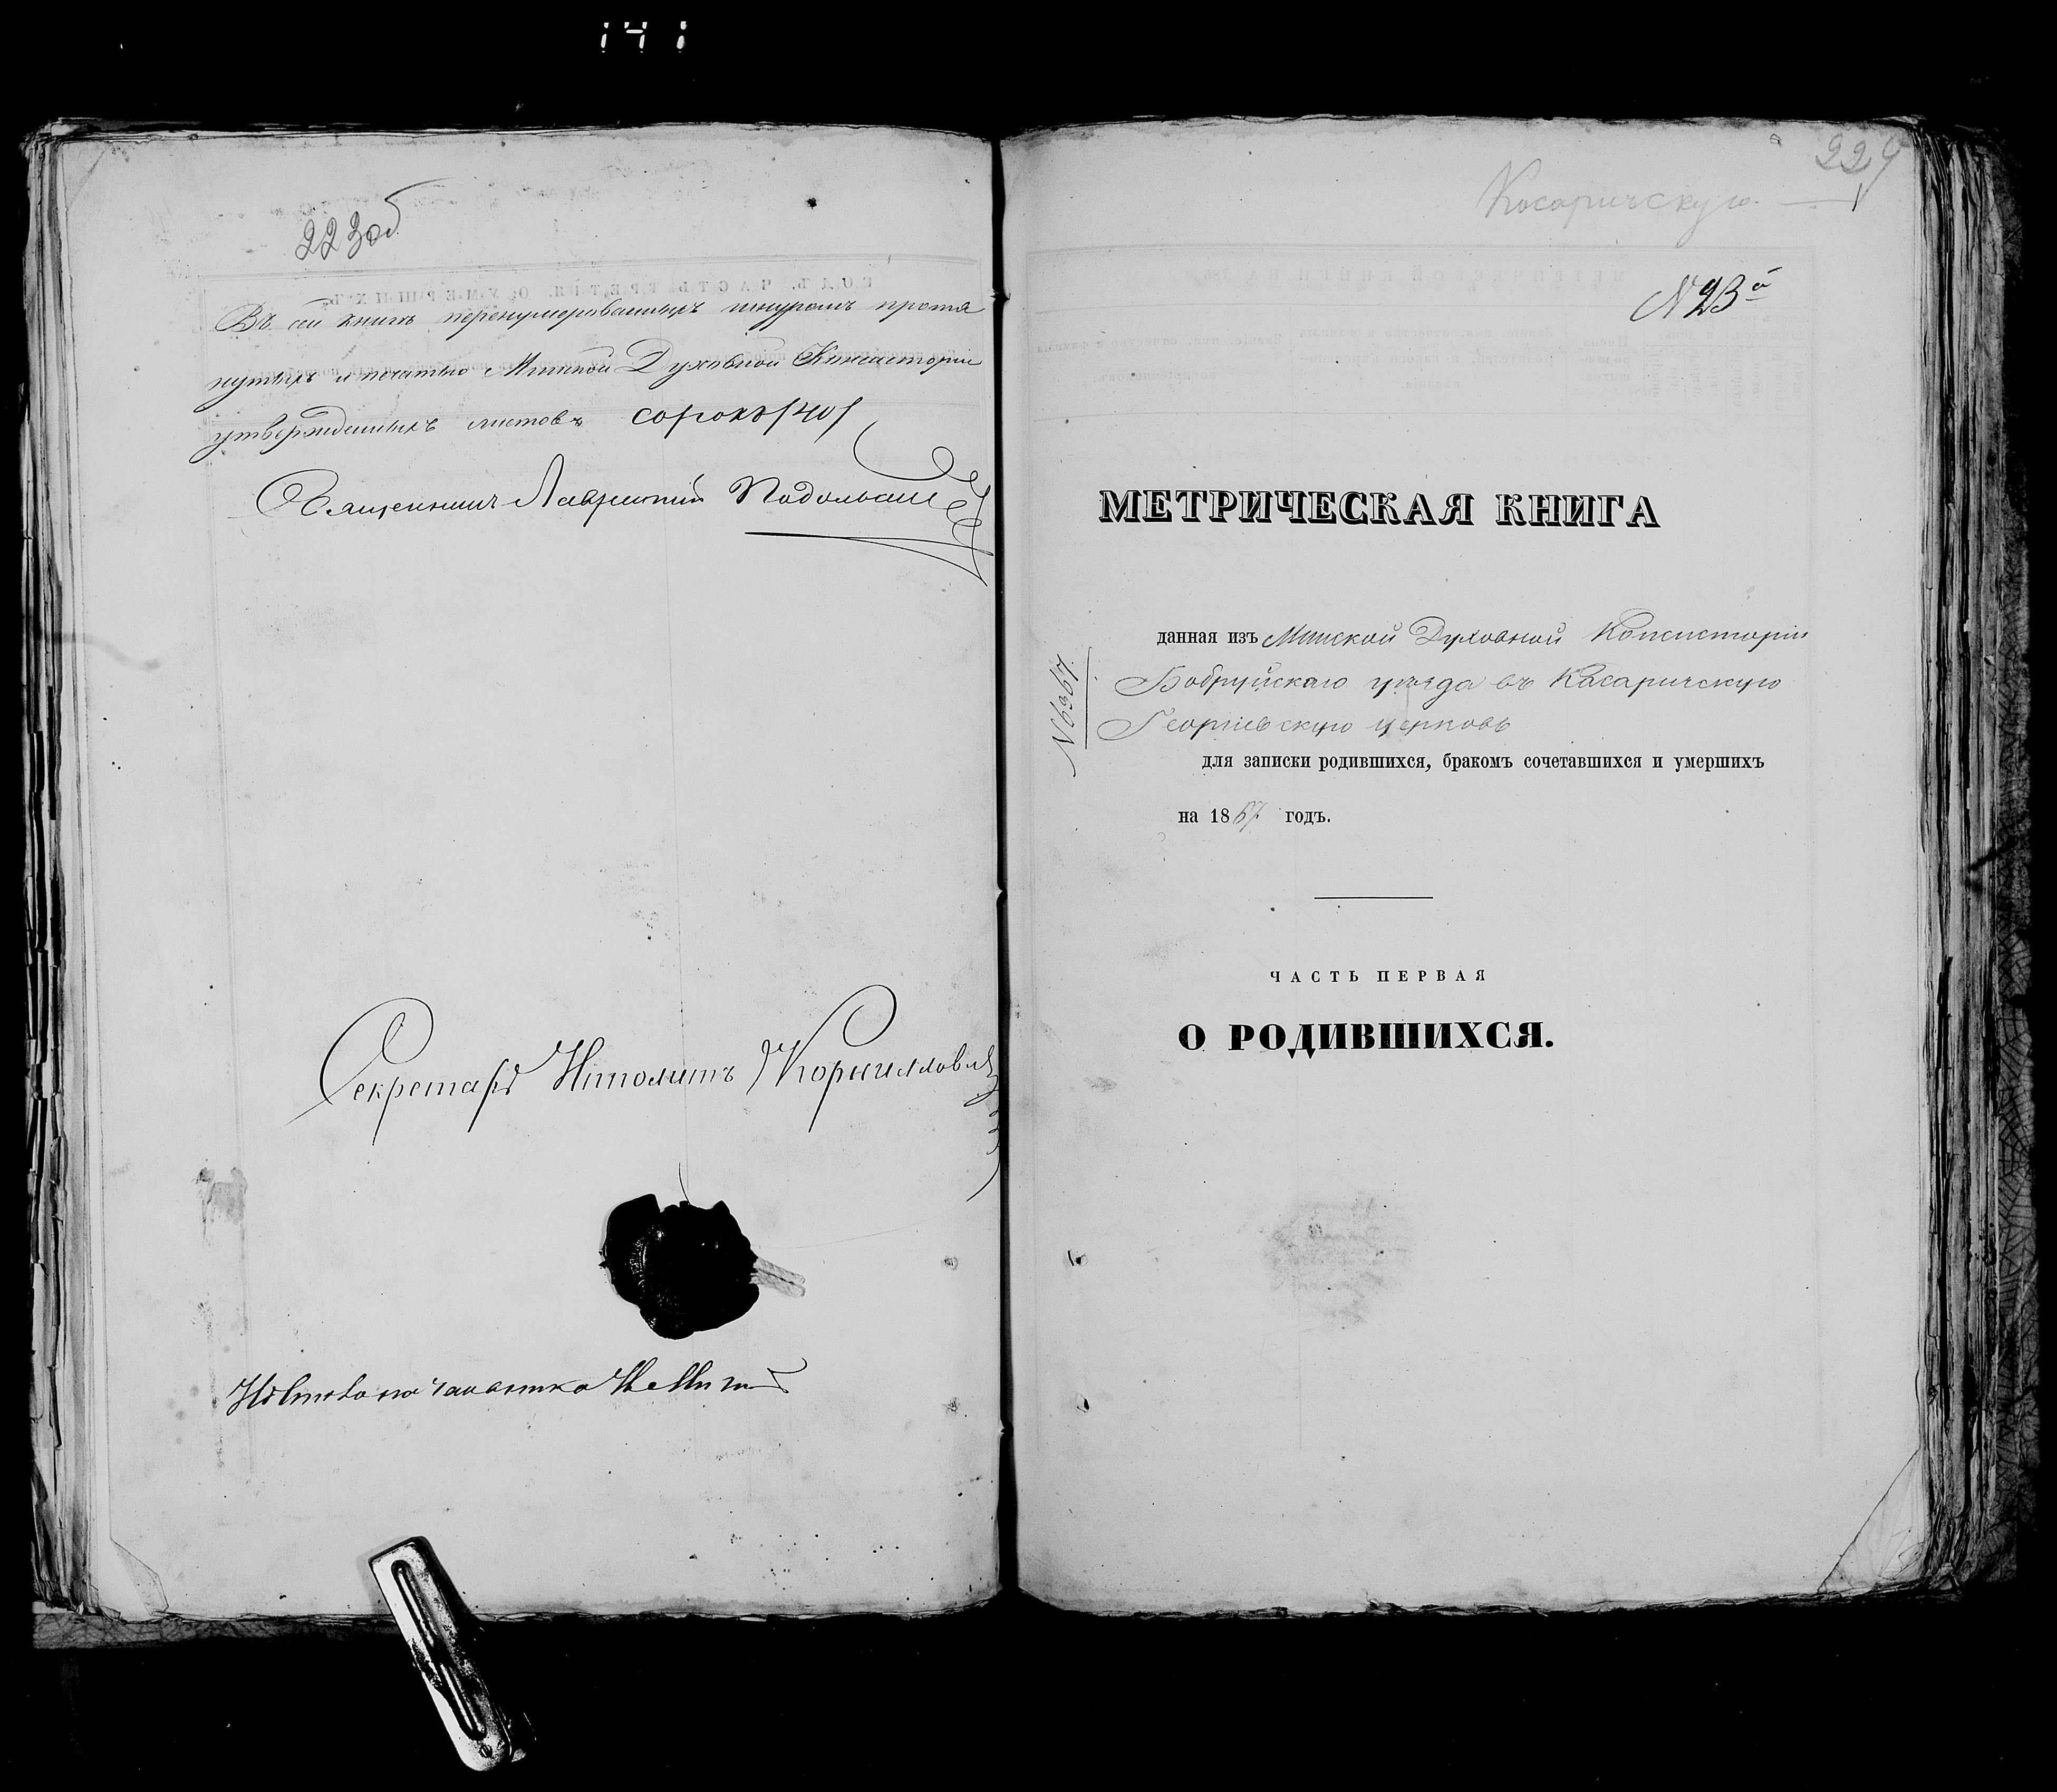 141
223 об
Въ сей книгѣ перенумерованныхъ шнуромъ протя
нутыхъ и печатью Минской Духовной Консисторіи
утвержденныхъ листовъ сорокъ /40/
Священникъ Лаврентій
Секретарь Корниллов
224
Касаричскую.
N 23й
МЕТРИЧЕСКАЯ КНИГА
данная изъ Минской Духовной Консисторіи
Бобруйскаго уѣзда въ Касаричскую
Георгіевскую церковь
N 6367.
для записки родившихся, бракомъ сочетавшихся и умершихъ
на 1867 годъ.
ЧАСТЬ ПЕРВАЯ
О РОДИВШИХСЯ.